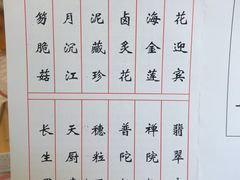 花迎宾
海金莲
卤炙花
泥藏珍
月沉江
笏脆菇
翡翠
禅院
普陀
穗粒
天厨
长生